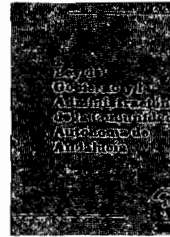 Ley del
Gobierno y la
Administración
de la Comunidad
Autónoma de
Andalucía